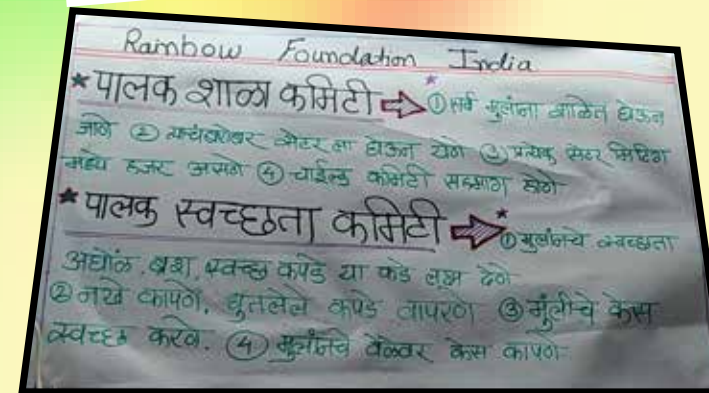 Rainbow Foundation India
* पालक शाळा कमिटी ⇨ ① सर्व मुलांना शाळेत घेऊन
जाणे ② त्याचंबरोबर सेंटर ला घेऊन येणे ③ प्रत्येक सेंटर मिटिंग
मध्ये हजर असणे ④ चाईल्ड कमिटी सहभाग होणे
* पालक स्वच्छता कमिटी ⇨ ① मुलांनचे स्वच्छता
अघोंळ, ब्रश, स्वच्छ कपडे या कडे लक्ष देणे
② नखे कापणे, धुतलेले कपडे वापरणे ③ मुंलीचे केस
स्वच्छ करवे. ④ मुलांनचे वेळेवर केस कापणे.